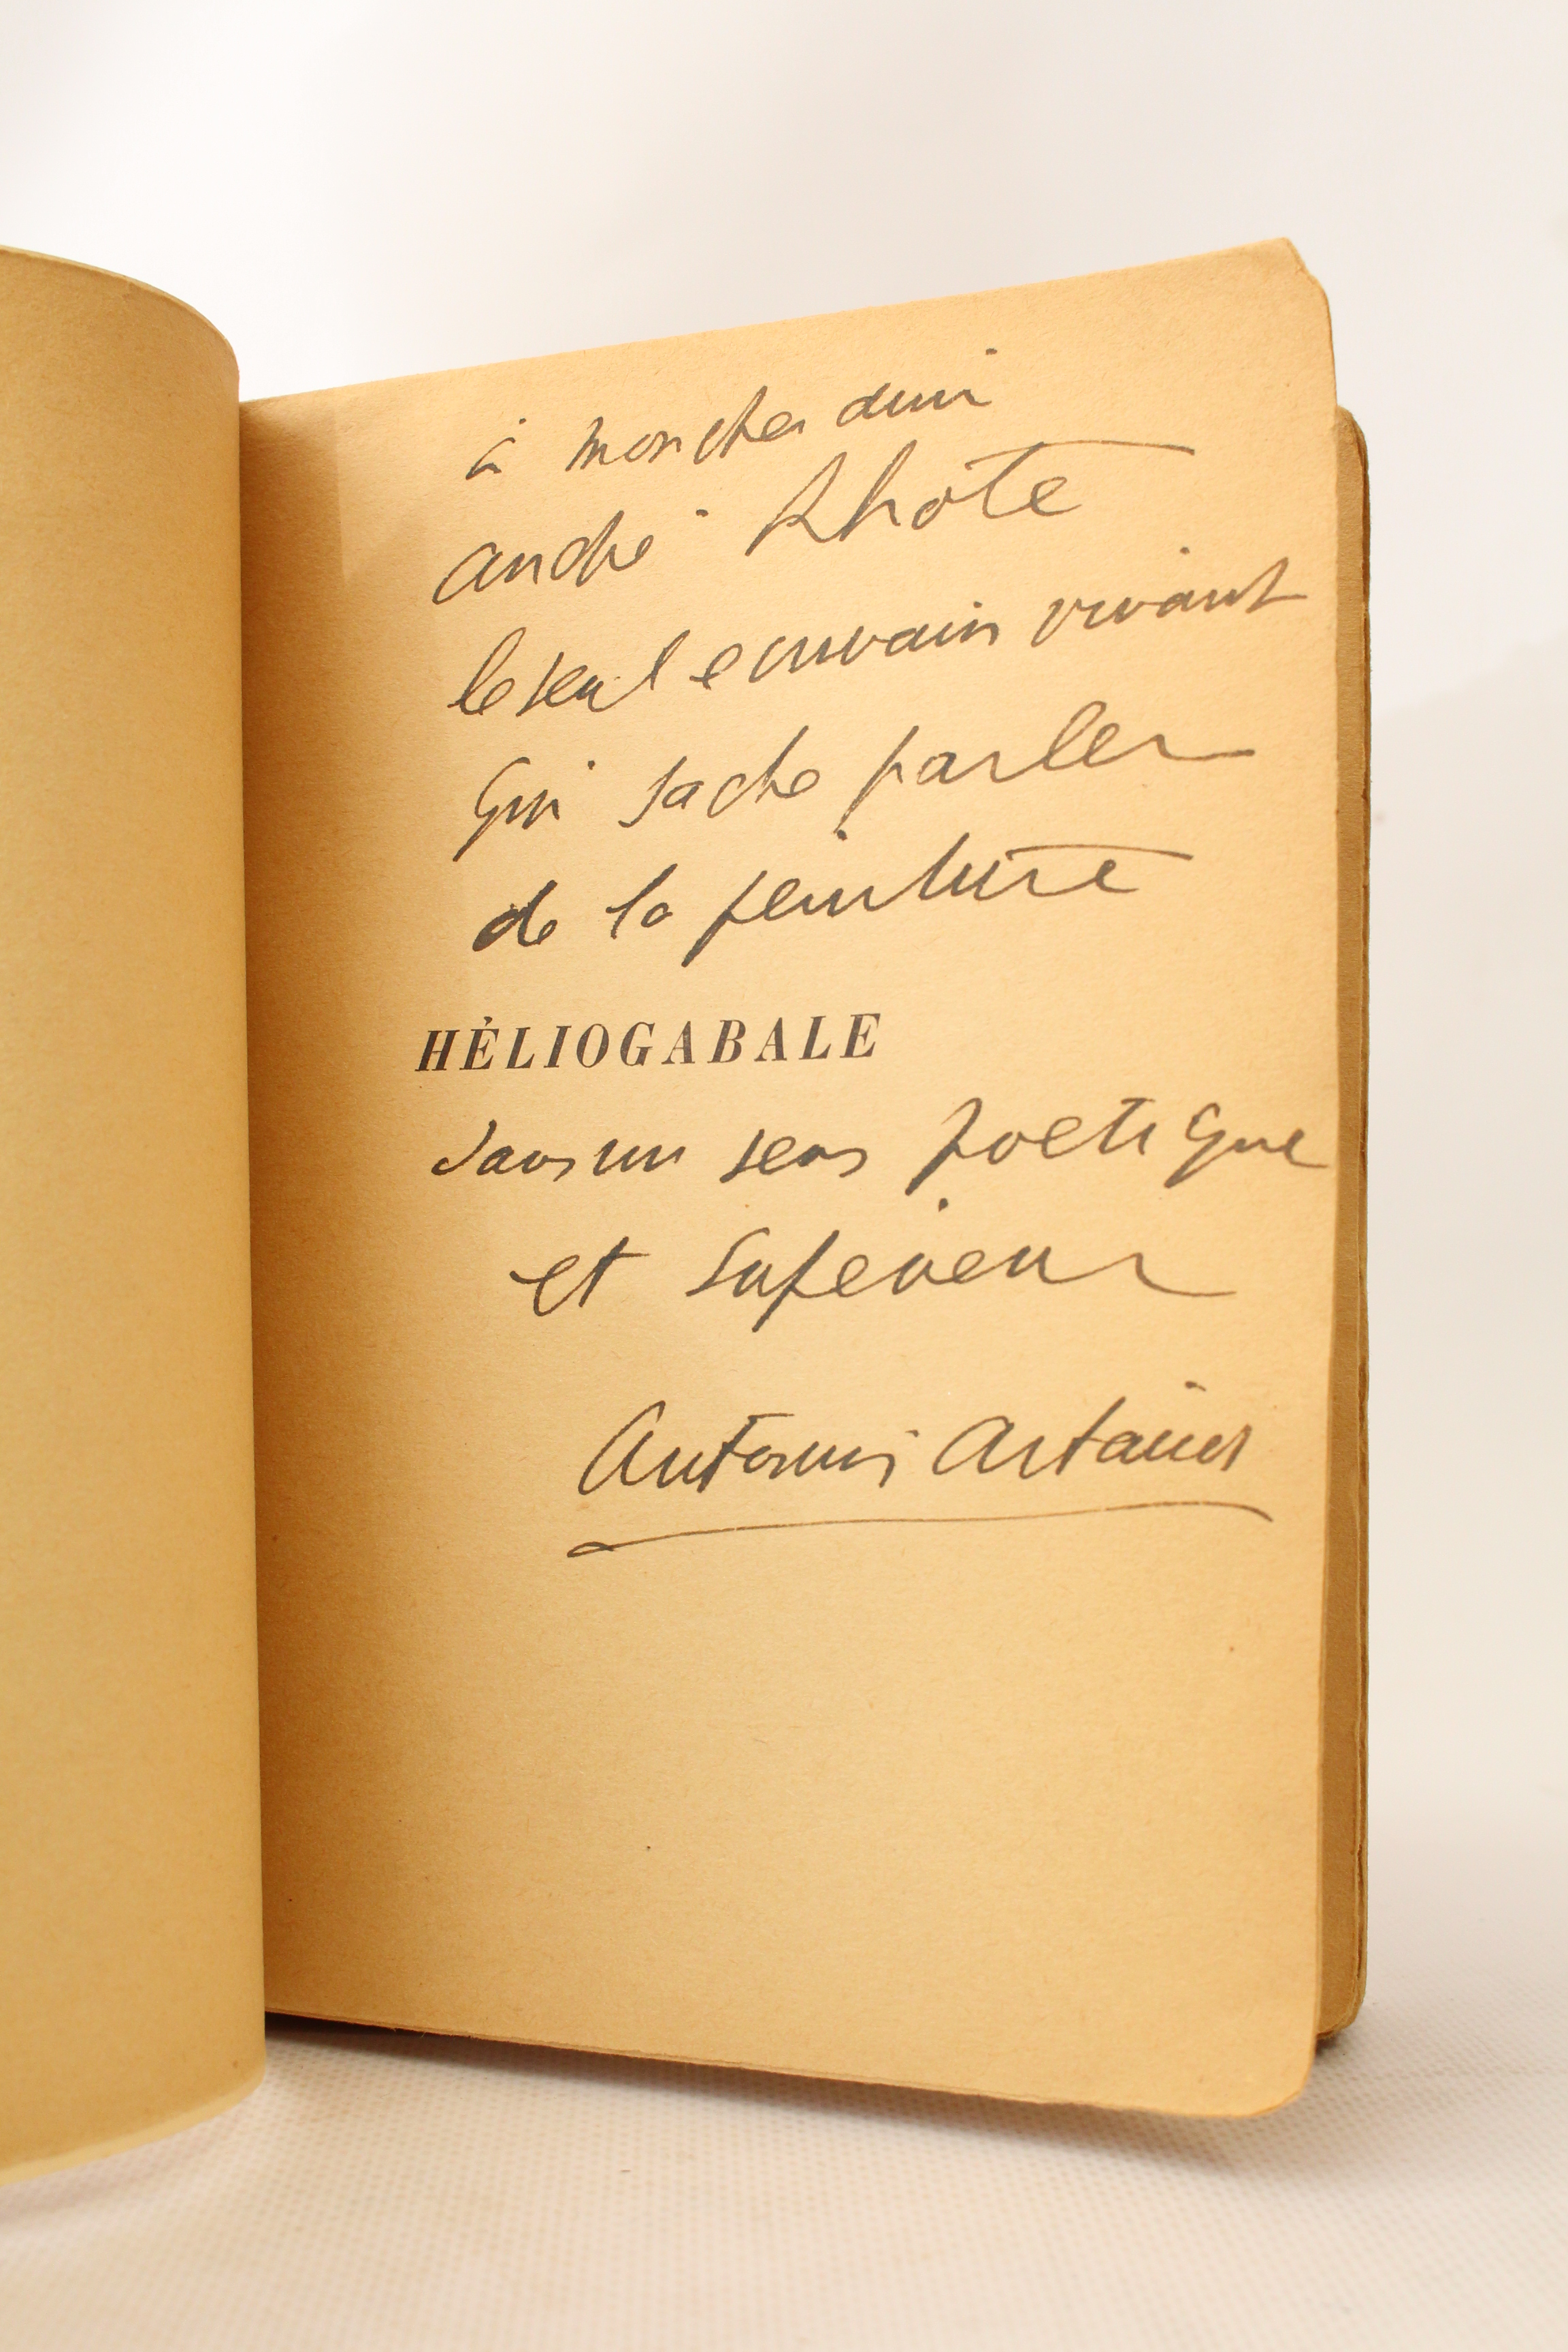 à mon cher ami
André Lhote
le seul ecrivain vivant
qui sache parler
de la peinture
HÉLIOGABALE
dans un sens poetique
et Superieur
Antonin Artaud